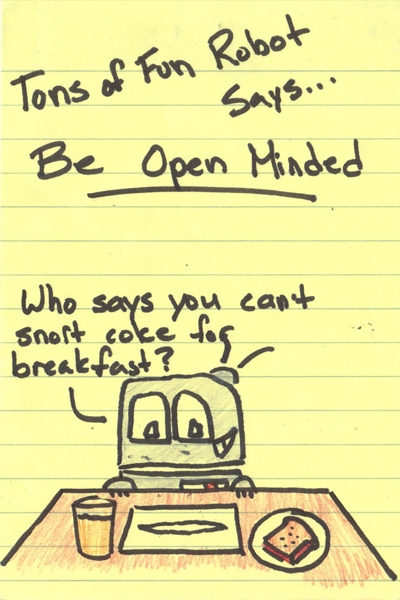 Tons of Fun Robot
Says...
Be Open Minded
Who says you can't
snort coke for
breakfast?